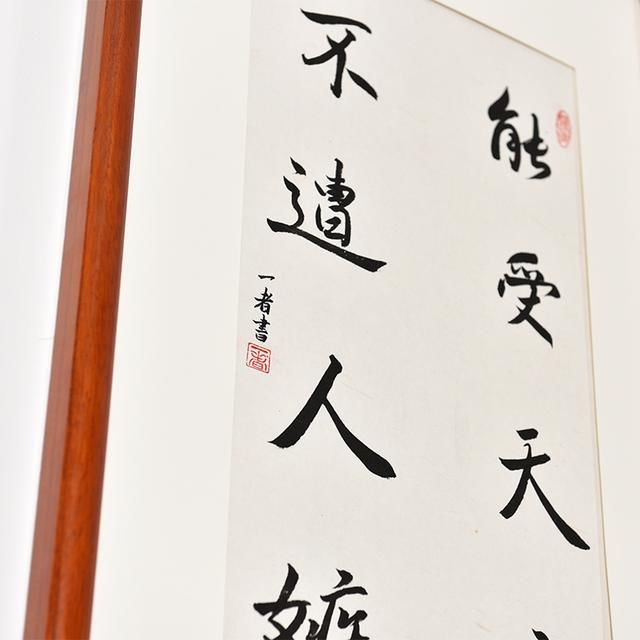 能受天
不遭人嫉
一者書